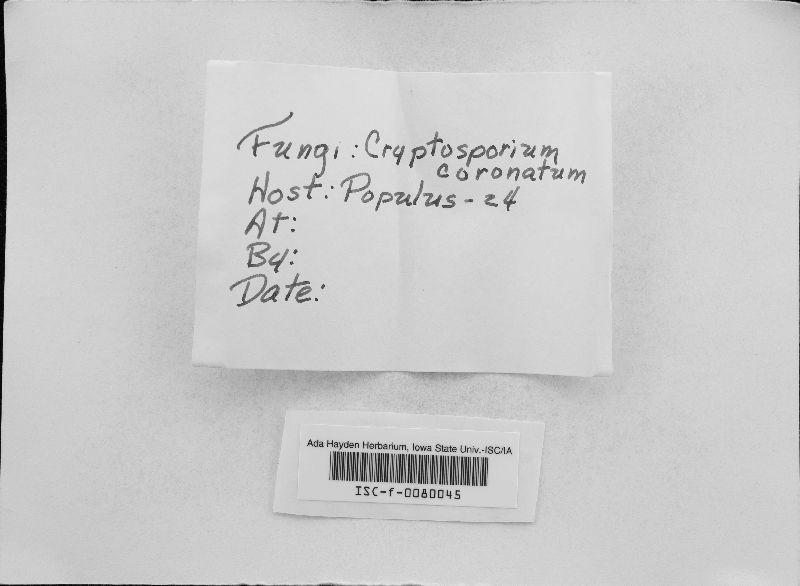 Fungi: Cryptosporium
coronatum
Host: Populus - 24
At:
By:
Date:
Ada Hayden Herbarium, Iowa State Univ.-ISC/IA
ISC-f-0080045